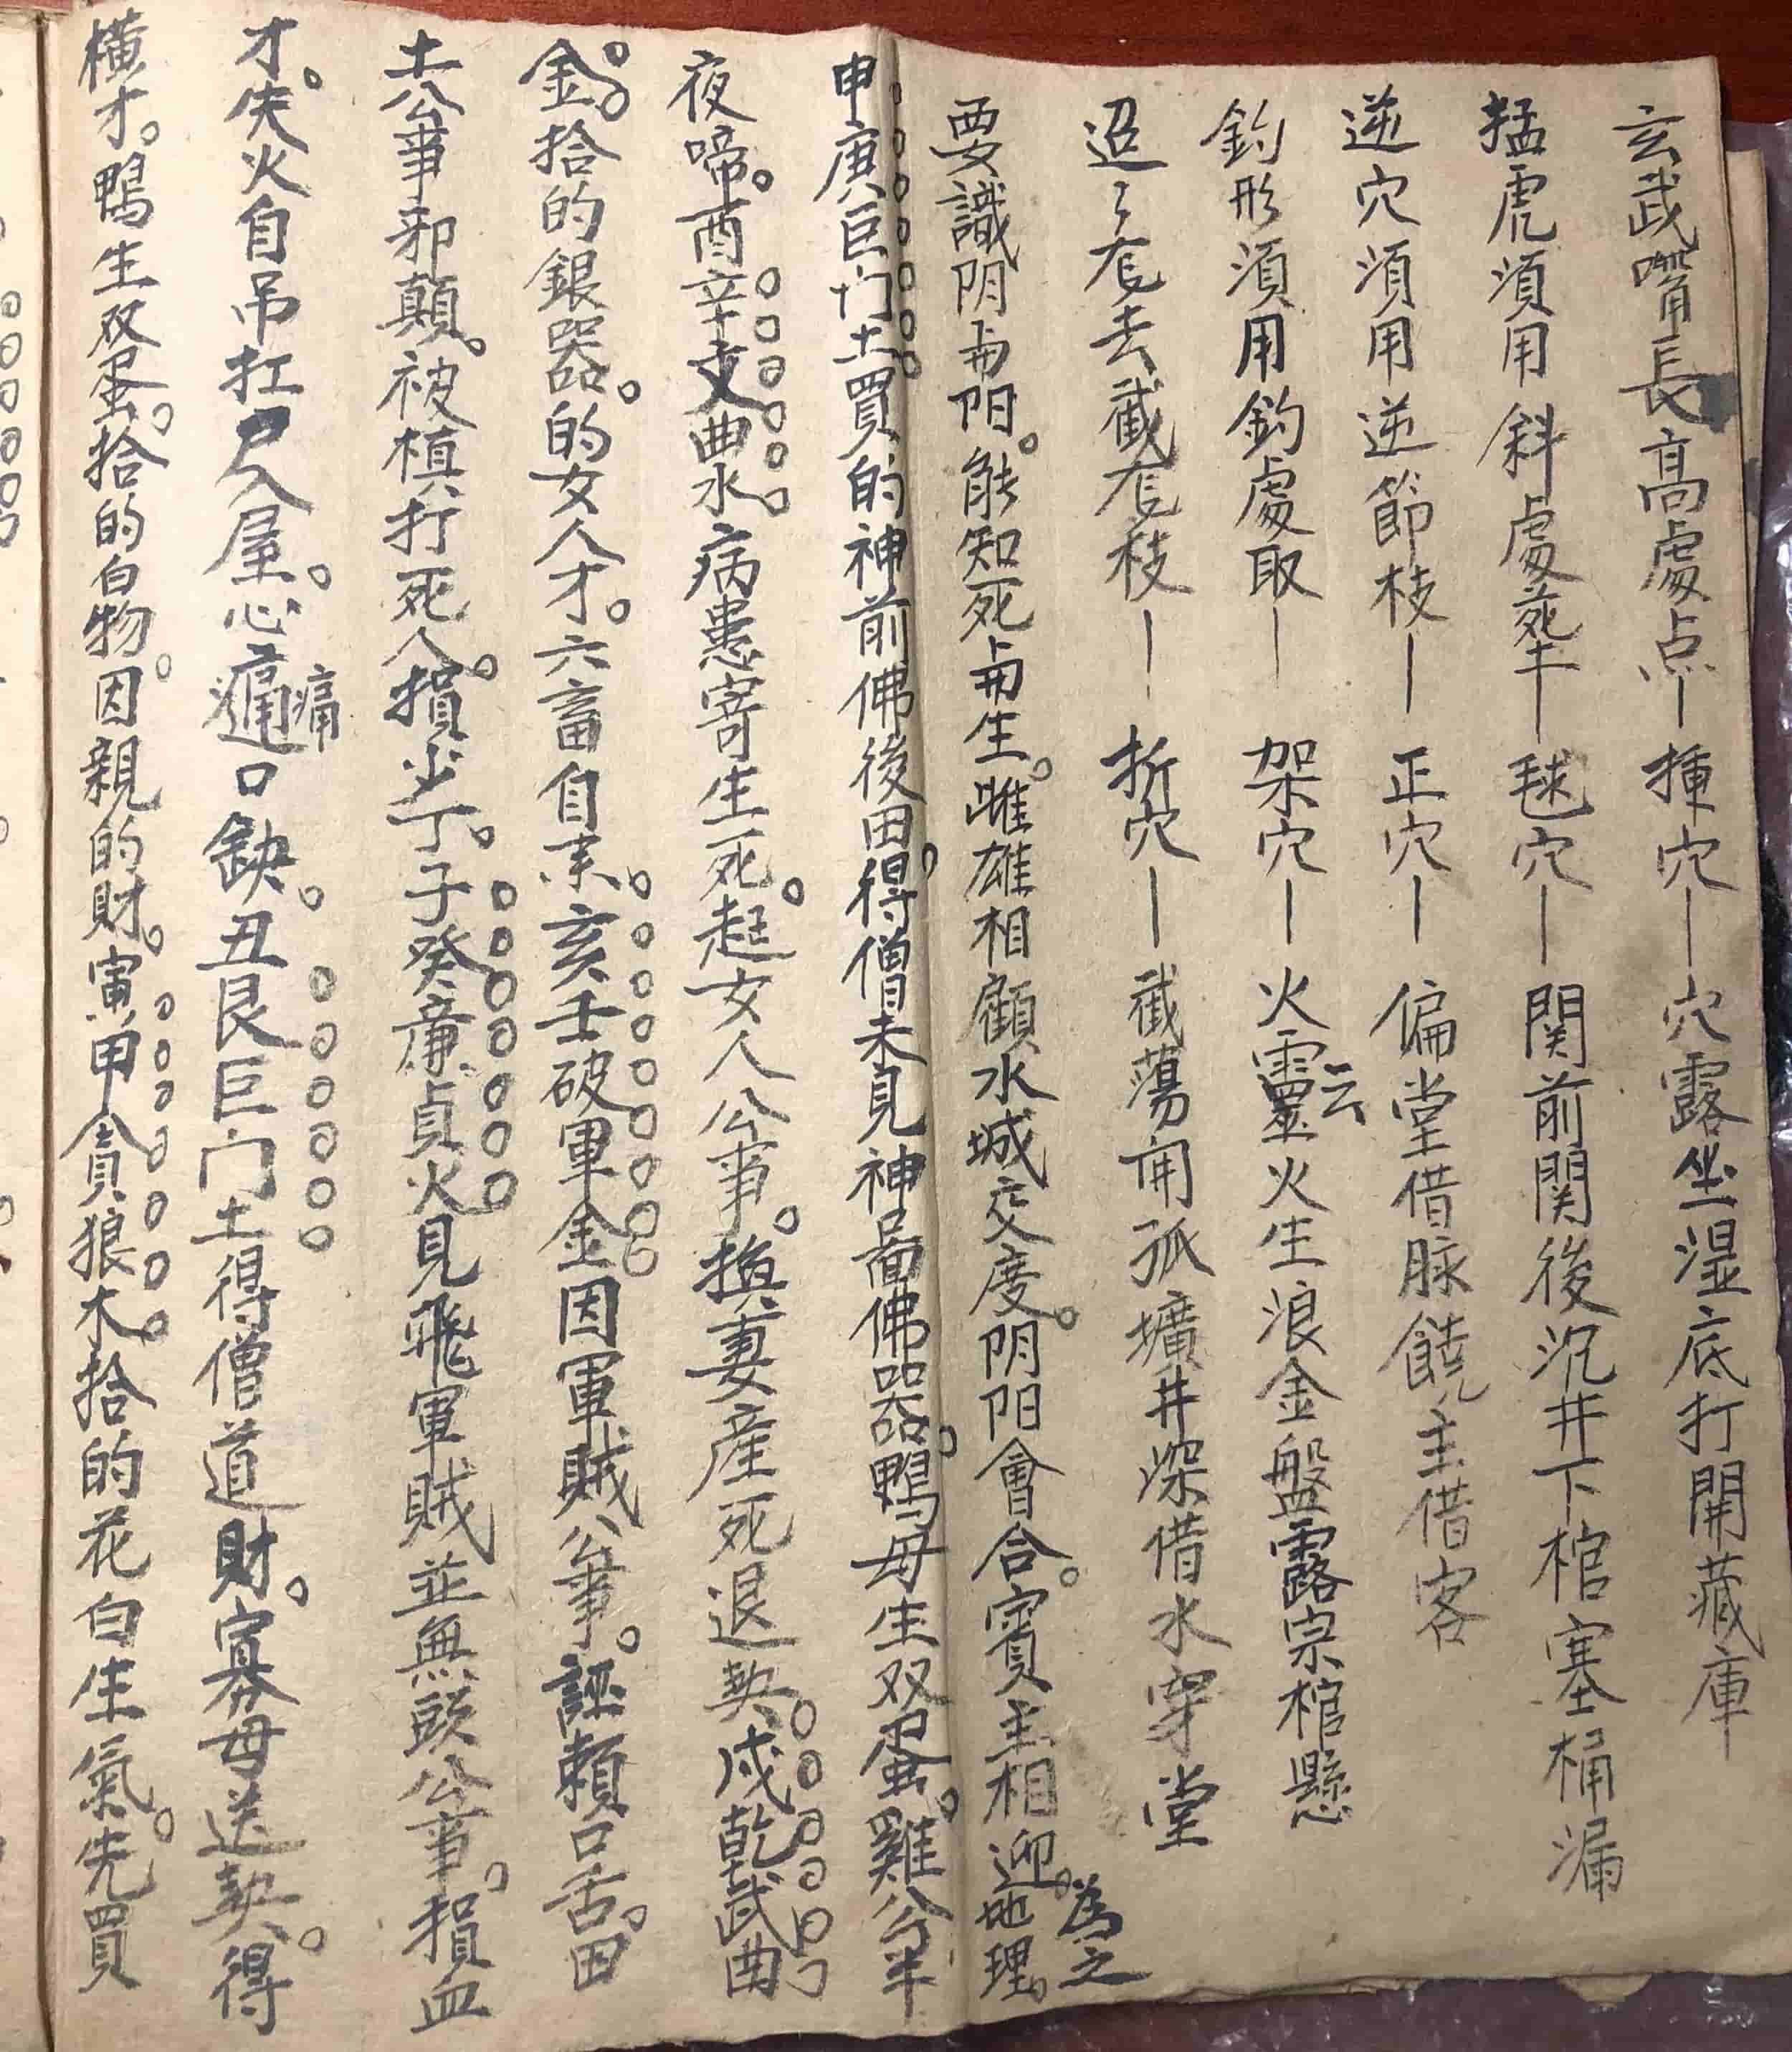 玄武嘴長高處点丨揰穴丨穴露坐湿底打開藏庫
猛虎須用斜處丨毬穴丨関前関後沉井下棺塞桶漏
逆穴須用逆節枝丨正穴丨偏堂借脉饒主借客
釣形須用鈎處取丨架穴丨火靈云火生浪金盤露宗棺懸
迢々去截枝丨折穴丨截蕩開孤壙井深借水穿堂
要識阴与阳。能知死与生。雌雄相顧水城交度。阴阳會合。賓主相迎。為之地理。
申庚巨门土買的神前佛後田。得僧未見神啚佛器。鸭母生双蛋。雞公半
夜啼。酉辛文曲水。病患寄生死。起女人公事。換妻産死退契。戌乾武曲
金。拾的銀器。的女人才。六畜自来。亥壬破軍金。因軍賊公事。誣賴口舌。田
土公事邪顛。被槙打死人。損少丁。子癸廉貞火。見飛軍賊並無頭公事。損血
才。失火自吊扛尸入屋。心痛口缺。丑艮巨门土得僧道財。寡母送契。得
橫才。鸭生双蛋。拾的白物。因親的財。寅甲貪狼木。拾的花白生氣。先買